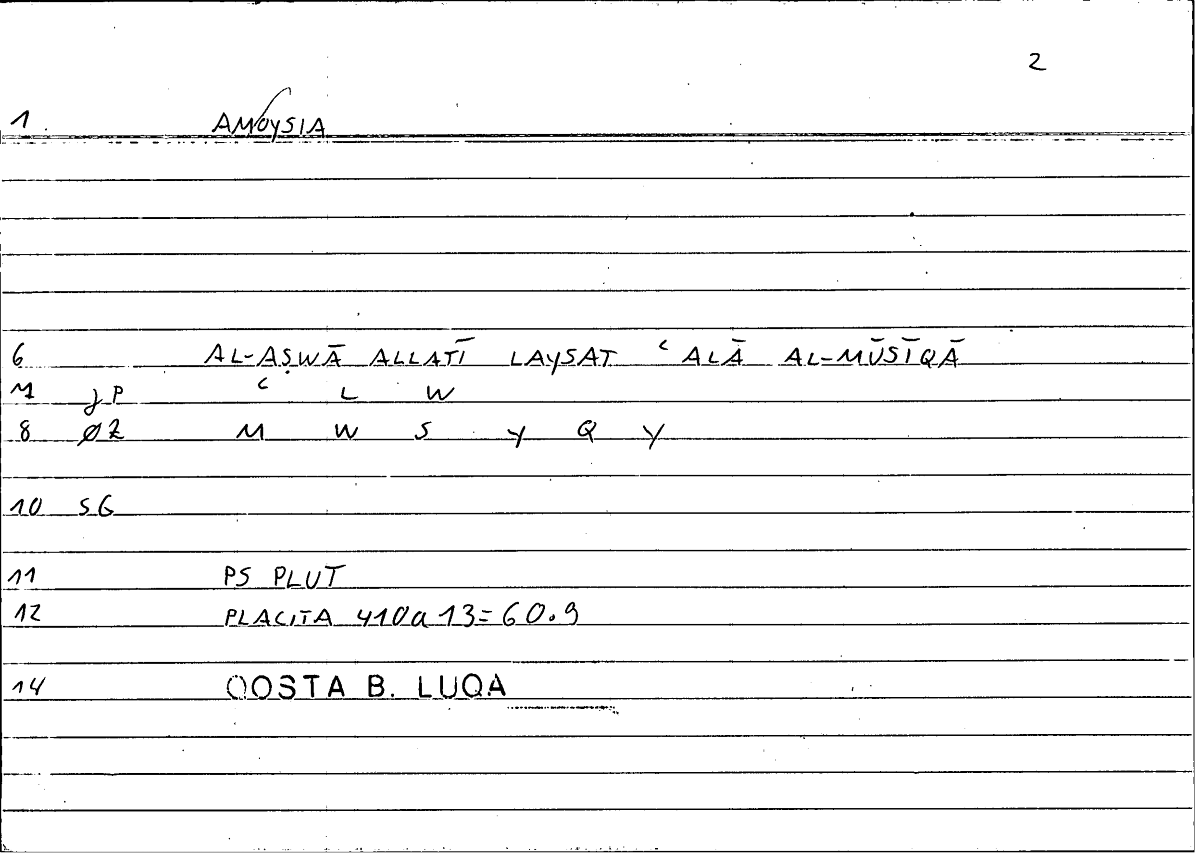 2
1 AMOYSIA
6 AL-AṢWĀ ALLATĪ LAYSAT ʿALĀ AL-MŪSĪQĀ
M JP ʿ L W
8 ØZ M W S Y Q Y
10 SG
11 PS PLUT
12 PLACITA 410a13=60.9
14 QOSTA B. LUQA